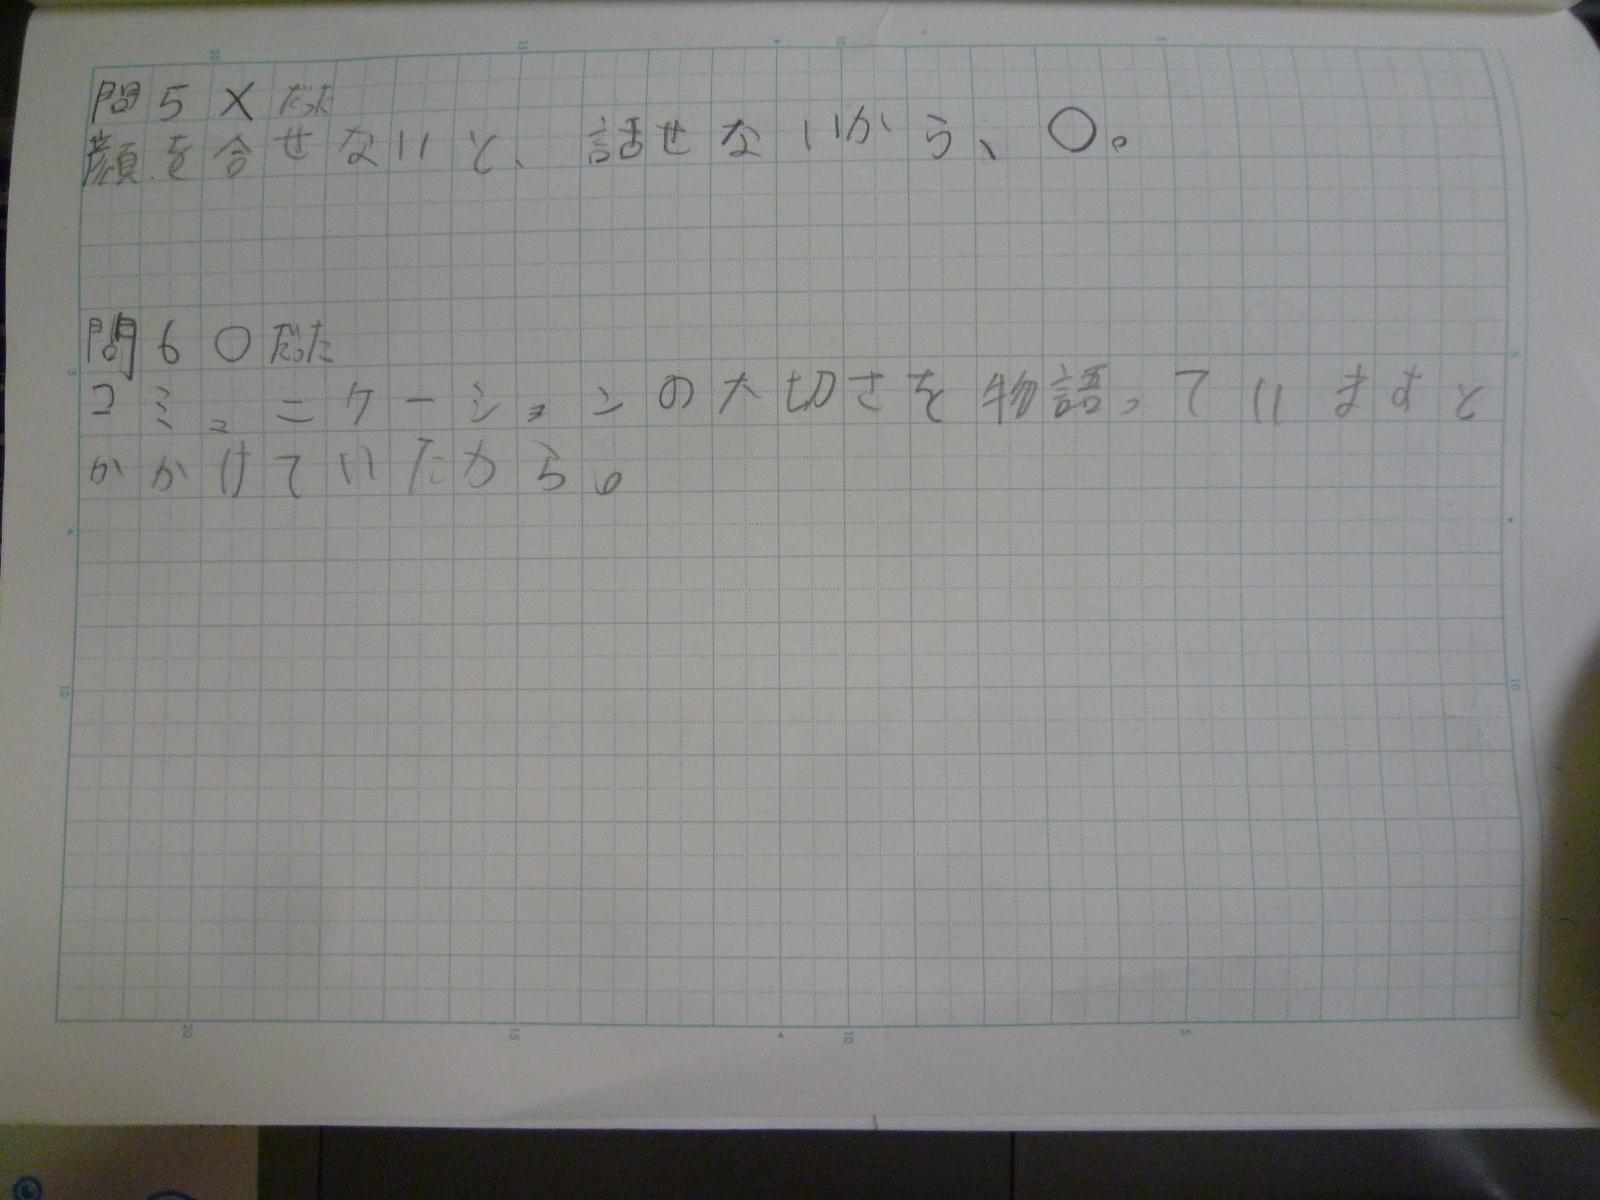 問5×だった
顔を合せないと、話せないから、〇。
問6〇だった
コミュニケーションの大切さを物語っていますと
かかけていたから。